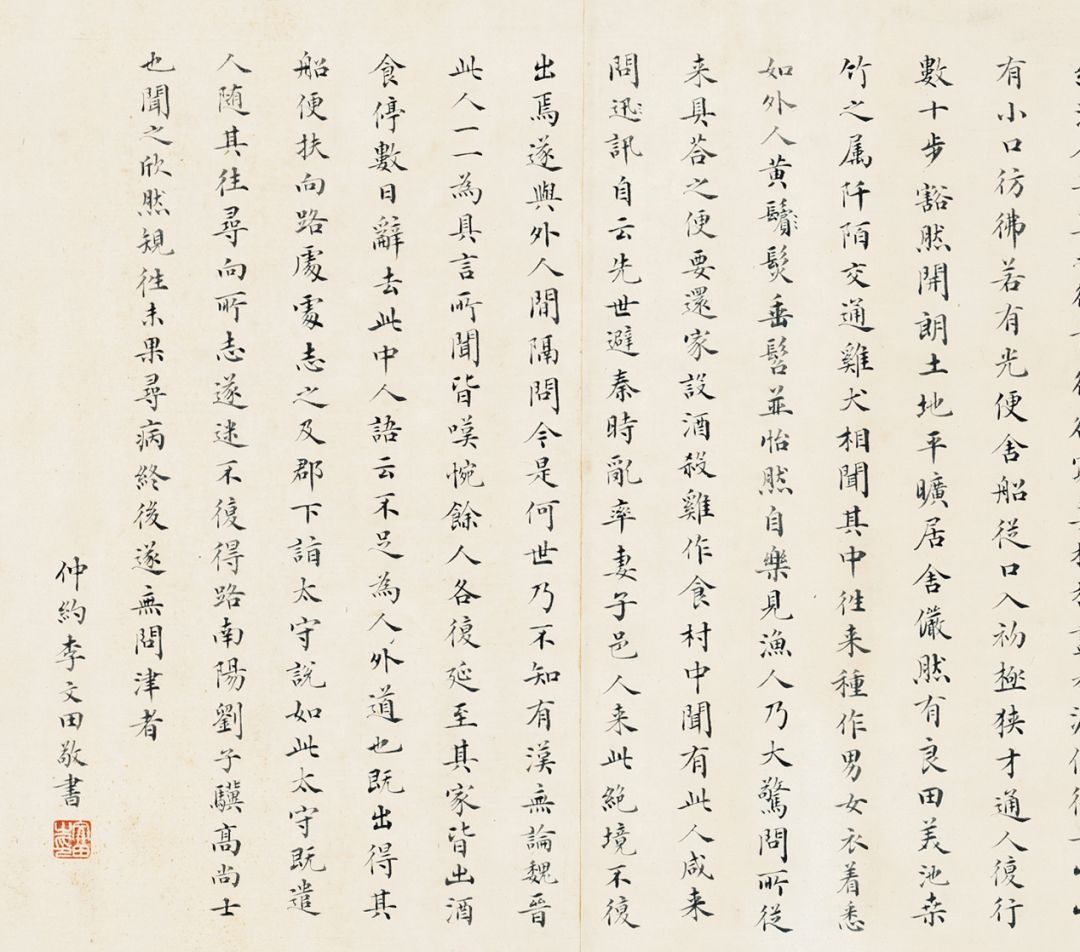 有小口彷彿若有光便舍船從口入初極狹才通人復行
數十步豁然開朗土地平曠居舍儼然有良田美池桒
竹之属阡陌交通雞犬相聞其中往来種作男女衣着悉
如外人黄鬢髮垂髫並怡然自樂見漁人乃大驚問所從
来具荅之便要還家設酒殺雞作食村中聞有此人咸来
問迅訊自云先世避秦時亂率妻子邑人来此絶境不復
出焉遂與外人間隔問今是何世乃不知有漢無論魏晉
此人一一為具言所聞皆嘆惋餘人各復延至其家皆出酒
食停數日辭去此中人語云不足為人外道也既出得其
船便扶向路處處志之及郡下詣太守說如此太守既遣
人随其往尋向所志遂迷不復得路南陽劉子驥高尚士
也聞之欣然規往未果尋病終後遂無問津者
仲約李文田敬書